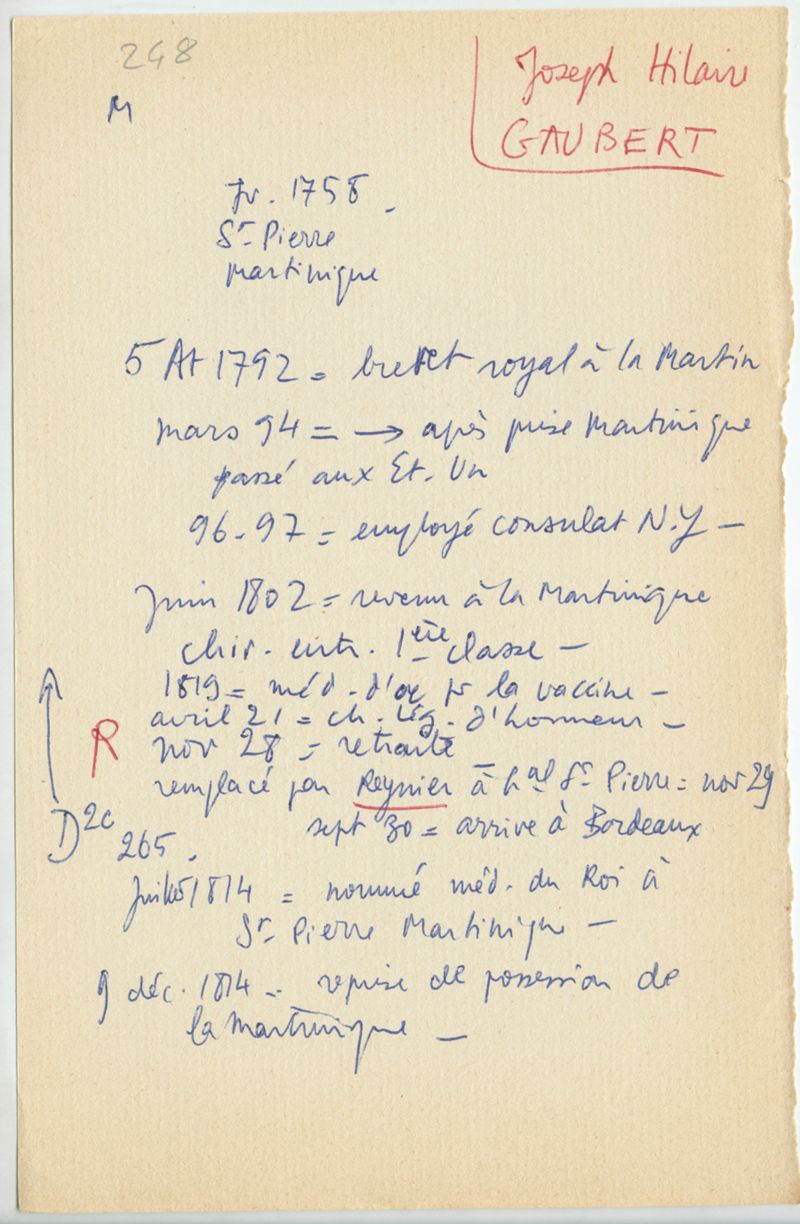 248
M
Joseph Hilaire
GAUBERT
Jr. 1758 -
St- Pierre
Martinique
5 At 1792 = brevet royal à la Martin
mars 94 = → après prise Martinique
passé aux Et. Un
96-97 = employé consulat N.Y -
Juin 1802 = revenu à la Martinique
chir. entr. 1ère classe -
1819 = méd. d'or pr la vaccine -
avril 21 = ch. Lég. d'honneur -
R nov 28 = retraite
remplacé par Reynier à hal St- Pierre = nov 29
D2c sept 30 = arrive à Bordeaux
265.
Juillet 1814 = nommé méd. du Roi à
St- Pierre Martinique -
9 déc. 1814 = reprise de possession de
la Martinique -